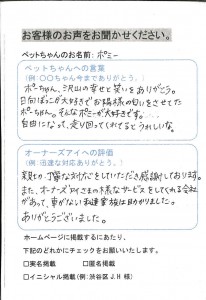 お客様のお声をお聞かせください。
ペットちゃんのお名前: ポニー
ペットちゃんへの言葉
(例:〇〇ちゃん今までありがとう。)
ポニちゃん、沢山の幸せと笑いをありがとう。
日向ぼっこが大好きでお陽様の匂いをさせてた
ポニーちゃん。そんなポニーが大好きです。
自由になって、走り回ってくれてるとうれしいな。
オーナーズアイへの評価
(例:迅速な対応ありがとう。)
親切、丁寧な対応をしていただき感謝しております。
また、オーナーズアイさまの様なサービスをしてくれる会社
があって、車がない私達家族は助かりました。
ありがとうございました。
ホームページに掲載するにあたり、
下記のどれかにチェックをお願いいたします。
□実名掲載 □匿名掲載
□イニシャル掲載(例:渋谷区 J.H 様)